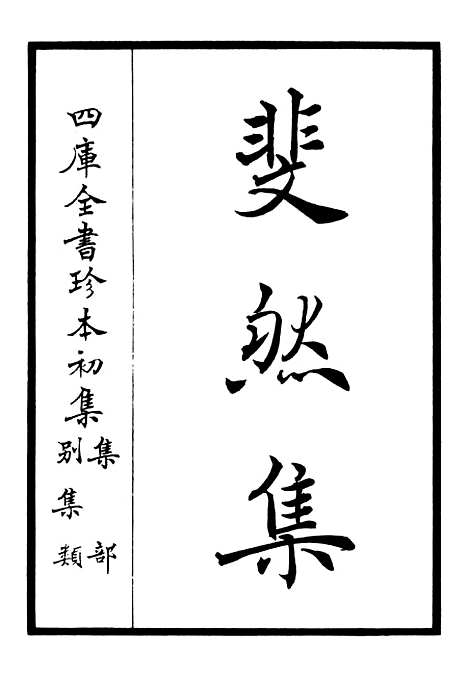 斐然集
四庫全書珍本初集
集部
別集類